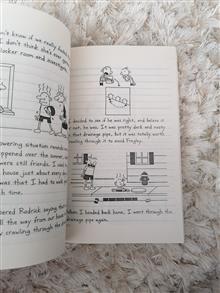 n't know if we really
don't think she's ever
locker room and
howering situation reminds
happened over the summer,
were still friends. I used to
house, just about every day
was that I had to walk
ered Rodrick saying there
all the way from our house
by crawling through the
I decided to see if he was right, and believe it
or not, he was. It was pretty dark and nasty
that drainage pipe, but it was totally worth
crawling through it to avoid Fregley.
When I headed back home, I went through the
drainage pipe again.